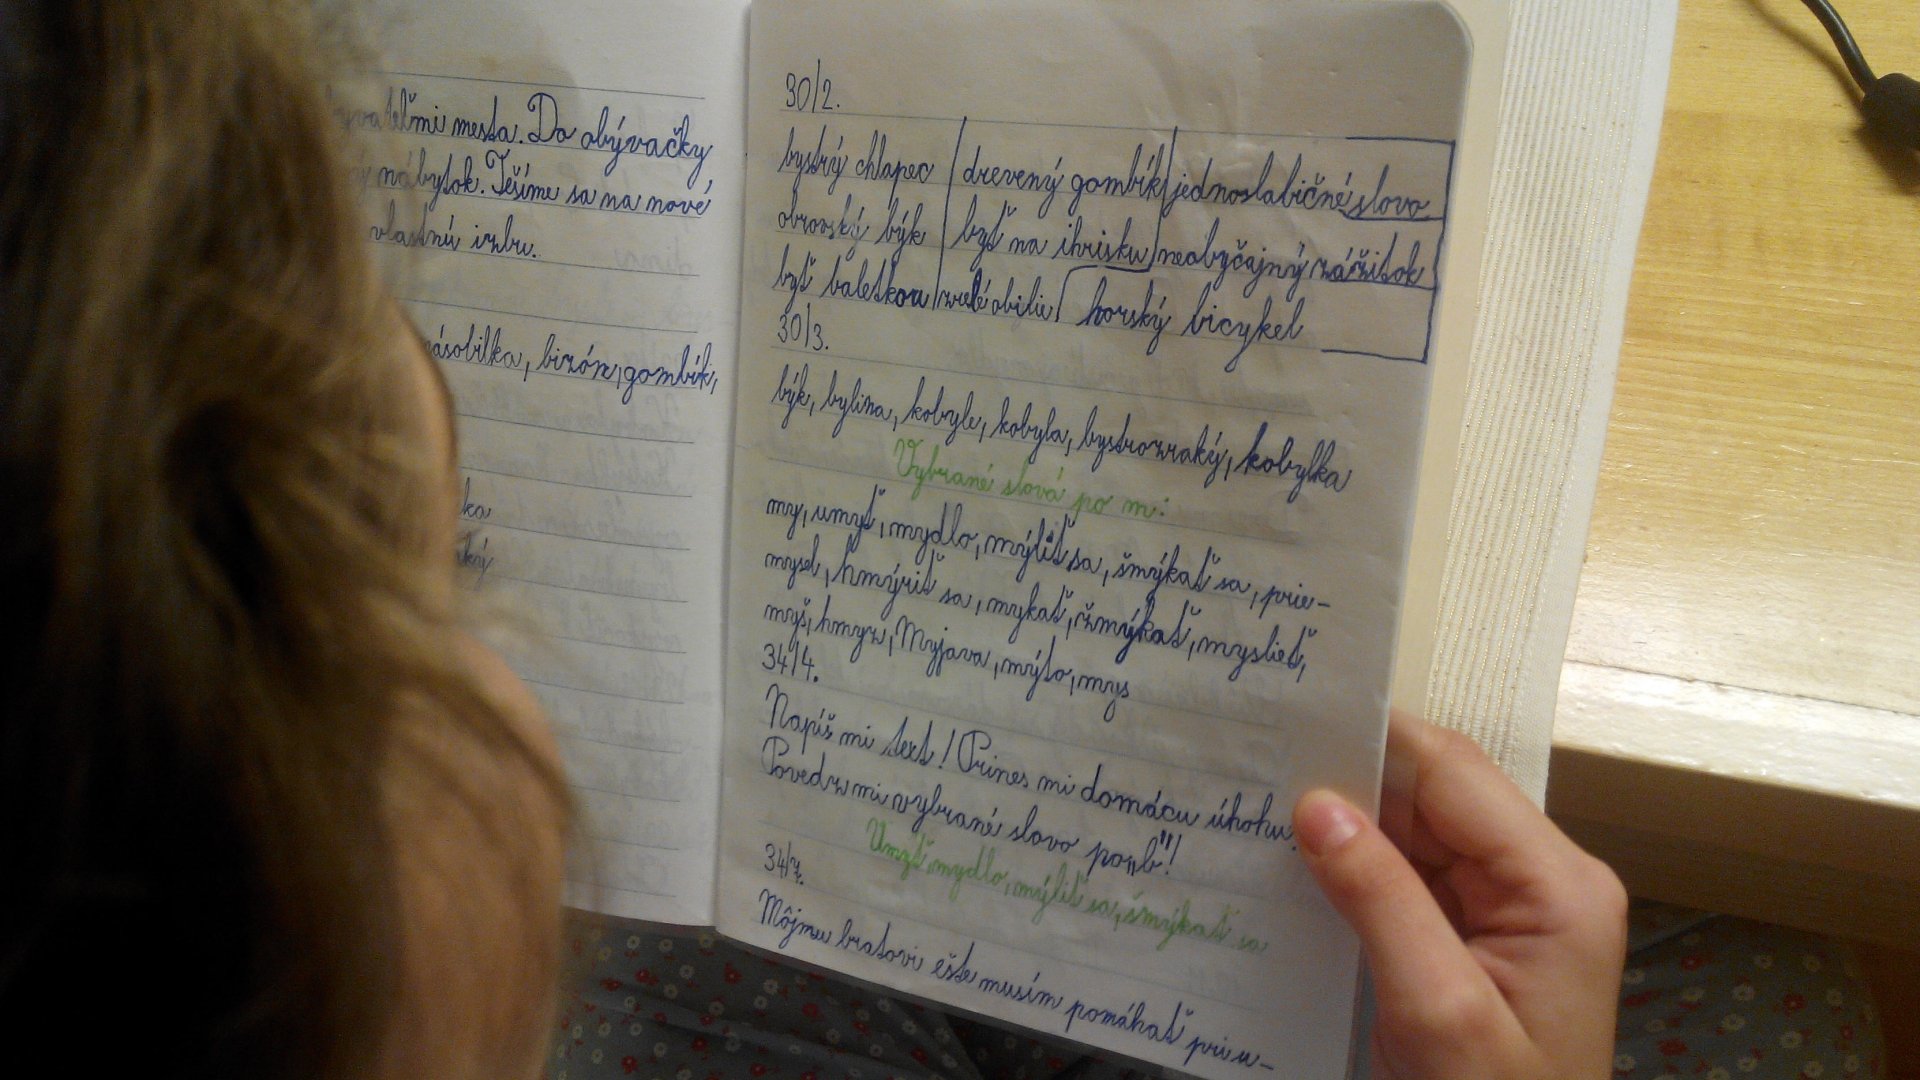 mesta. Do obývačky
nábytok. Tešíme sa na nové
vlastnú izbu.
násobilka, bizón, gombík,
ka
ký
30/2.
bystrý chlapec | drevený gombík | jednoslabičné slovo
obrovský býk | byť na ihrisku | neobyčajný zážitok
byť baletkou | zrelé obilie | horský bicykel
30/3.
býk, bylina, kobyle, kobyla, bystrozraký, kobylka
Vybrané slová po m:
my, umyť, mydlo, mýliť sa, šmýkať sa, prie-
mysel, hmýriť sa, mykať, žmýkať, myslieť,
myš, hmyz, Myjava, mýto, mys
34/4.
Napíš mi text! Prines mi domácu úhohu.
Povedz mi vybrané slovo po „b"!
Umyť, mydlo, mýliť sa, šmýkať sa
34/7.
Môjmu bratovi ešte musím pomáhať pri u-